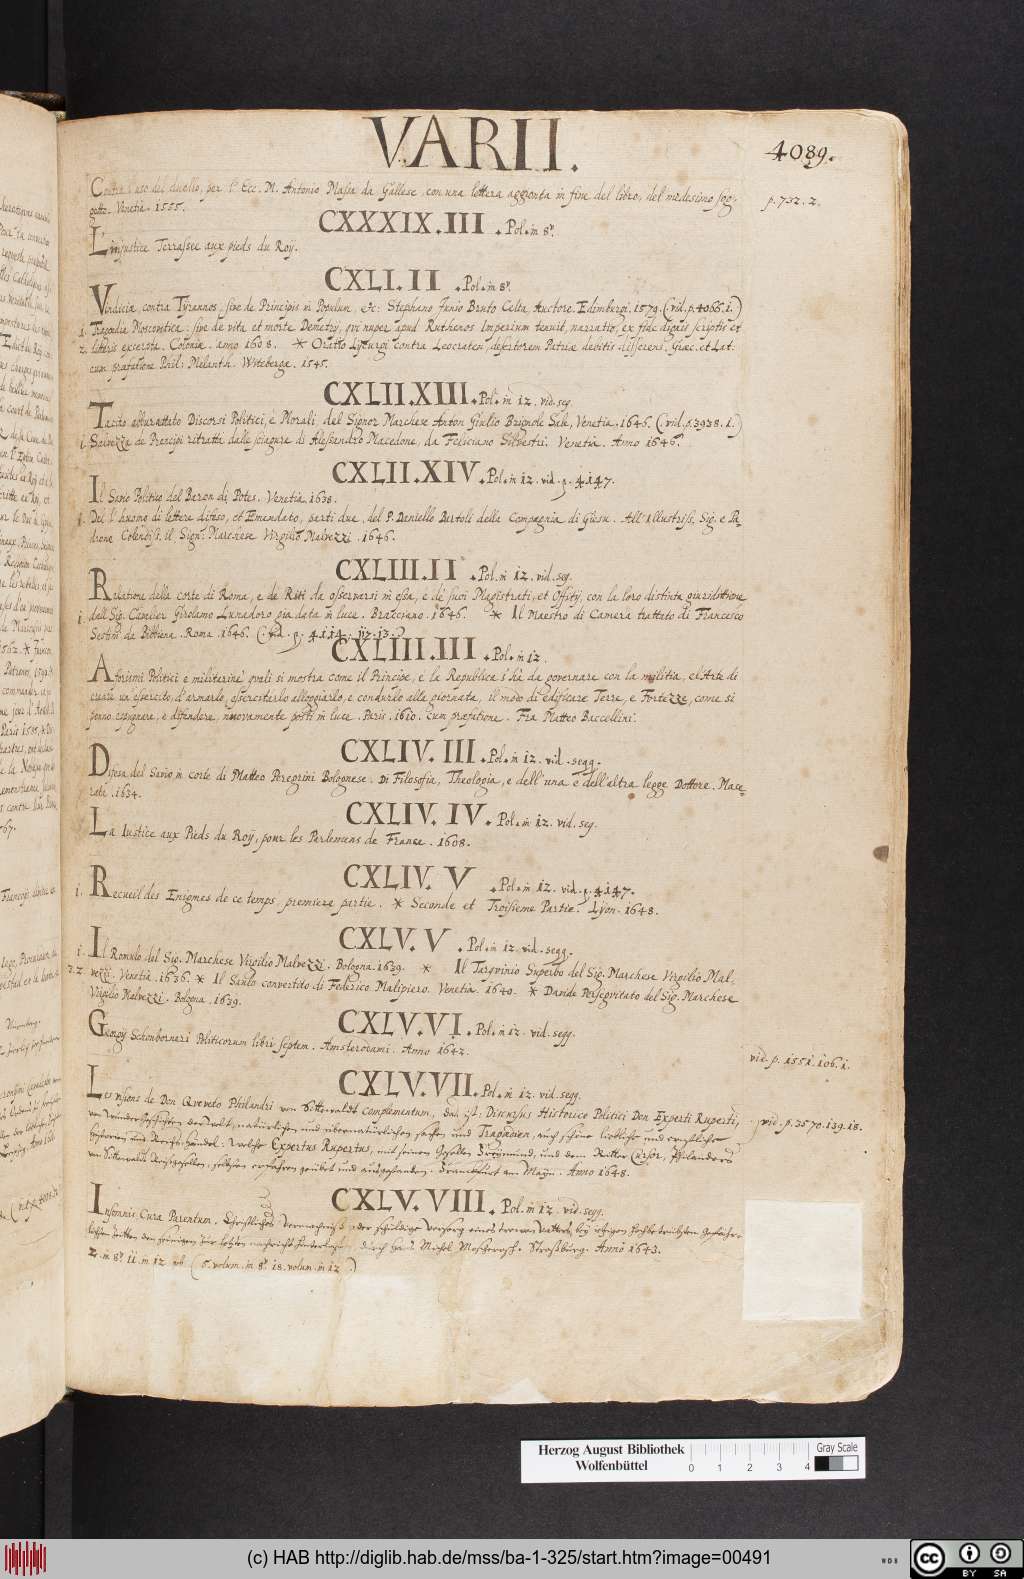 VARII.
4089.
Contra l'uso del duello, per l'Ecc. M. Antonio Massa da Gallese, con una lettera aggionta in fine del libro, del medesimo sog-
getto. Venetia. 1555.
p. 752. 2.
CXXXIX.III . Pol. in 8°.
L'injustice Terrassée aux pieds du Roy.
CXLI.II . Pol. in 8°.
Vindiciæ contra Tyrannos, sive de Principis in Populum, etc: Stephano Junio Bruto Celta, Auctore. Edimburgi. 1579. (: vid. p. 4066. 1.)
1. Tragœdia Moscovitica: sive de vita et morte Demetrij, qui nuper apud Ruthenos Imperium tenuit, narratio, ex fide dignis scriptis et
2. litteris excerpta. Coloniæ. anno 1608. * Oratio Lycurgi contra Leocratem, desertorem Patriæ debitis disserens. Græc. et Lat.
cum præfatione Phil: Melanth. Witebergæ. 1545.
CXLII.XIII . Pol. in 12. vid. seg.
Tacito abburattato Discorsi Politici, è Morali del Signor Marchese Anton Giulio Brignole Sale, Venetia. 1646. (: vid. p. 3938. 1.)
1. Salvezza de Prencipi ritratta dalle sciagure di Alessandro Macedone, da Feliciano Silvestri. Venetia. Anno 1646.
CXLII.XIV . Pol. in 12. vid. p. 4147.
Il Savio Politico del Baron di Potes. Venetia. 1638.
1. Del l'huomo di lettere difeso, et Emendato, parti due, del P. Daniello Bartoli della Compagnia di Giesu. All'Illustriss. Sig. e Pa-
drone Colendiss. il Sign: Marchese Virgilio Malvezzi. 1646.
CXLIII.II . Pol. in 12. vid. seg.
Relatione della corte di Roma, e de Riti da osservarsi in essa, e de' suoi Magistrati, et Offitij, con la loro distinta giuridittione
1. dell Sig. Cavalier Girolamo Lunadoro gia data in luce. Bracciano. 1646. * Il Maestro di Camera trattato di Francesco
Sestini da Bibbiena. Roma. 1646. (: vid. p. 4114. 117. 13.)
CXLIII.III . Pol. in 12.
Aforismi Politici e militari nè quali si mostra come il Principe, e la Republica s'hà da governare con la militia, el'Arte di
creare un essercito, d'armarlo, essercitarlo alloggiarlo e condurlo alla giornata, il modo di edificare Terre, e Fortezze, come si
ponno espugnare, e difendere, nuovamente posti in luce. Paris. 1610. Cum præfatione. Fra Matteo Baccellini.
CXLIV.III . Pol. in 12. vid. segg.
Difesa del Savio in corte di Matteo Peregrini Bolognese. Di Filosofia, Theologia, e dell'una e dell'altra legge Dottore. Mace-
rata. 1634.
CXLIV.IV . Pol. in 12. vid. seg.
La Iustice aux Pieds du Roy, pour les Parlemens de France. 1608.
CXLIV.V . Pol. in 12. vid. p. 4147.
1. Recueil des Enigmes de ce temps, premiere partie. * Seconde et Troisieme Partie. Lyon. 1648.
CXLV.V . Pol. in 12. vid. segg.
1. Il Romulo del Sig. Marchese Virgilio Malvezzi. Bologna. 1639. * Il Tarquinio Superbo del Sig. Marchese Virgilio Mal-
vezzi. Venetia. 1636. * Il Saulo convertito di Federico Malipiero. Venetia. 1640. * Davide Perseguitato del Sig. Marchese
Virgilio Malvezzi. Bologna. 1639.
CXLV.VI . Pol. in 12. vid. segg.
Georgij Schönborneri Politicorum libri septem. Amsterodami. Anno 1642.
vid. p. 1551. 106. 1.
CXLV.VII . Pol. in 12. vid. segg.
Les visions de Don Queveto Philandri von Sittewaldt complementum, das ist: Discursus Historico Politici Don Experti Ruperti,
vid. p. 3570. 139. 18.
von Wundergeschichten der Welt, natürlichen und übernatürlichen sachen und Tragœdien, auch schöne liebliche und ernstliche
Historien und Rechts-händel. Welche Expertus Rupertus, mit seinen Gesellen Freymund, und dem Ritter Cursor, Philanders
von Sittenwaldt Reisgesellen, selbsten erfahren geübet und ausgestanden. Franckfurt am Mayn. Anno 1648.
CXLV.VIII . Pol. in 12. vid. segg.
Insomnis Cura Parentum. Christliches Vermächniß oder schuldige Vorsorg eines trewen Vatters, bey ietzigen hochbetrübsten gefähr-
lichsten Zeitten den seinigen zur letzten nachricht hinterlassen durch Hans Michel Moscherosch. Straßburg. Anno 1643.
2. in 8° 11. in 12 (5. volum. in 8° 18. volum. in 12.)
Herzog August Bibliothek
Wolfenbüttel
Gray Scale
0 1 2 3 4
(c) HAB http://diglib.hab.de/mss/ba-1-325/start.htm?image=00491
WDB
cc BY SA